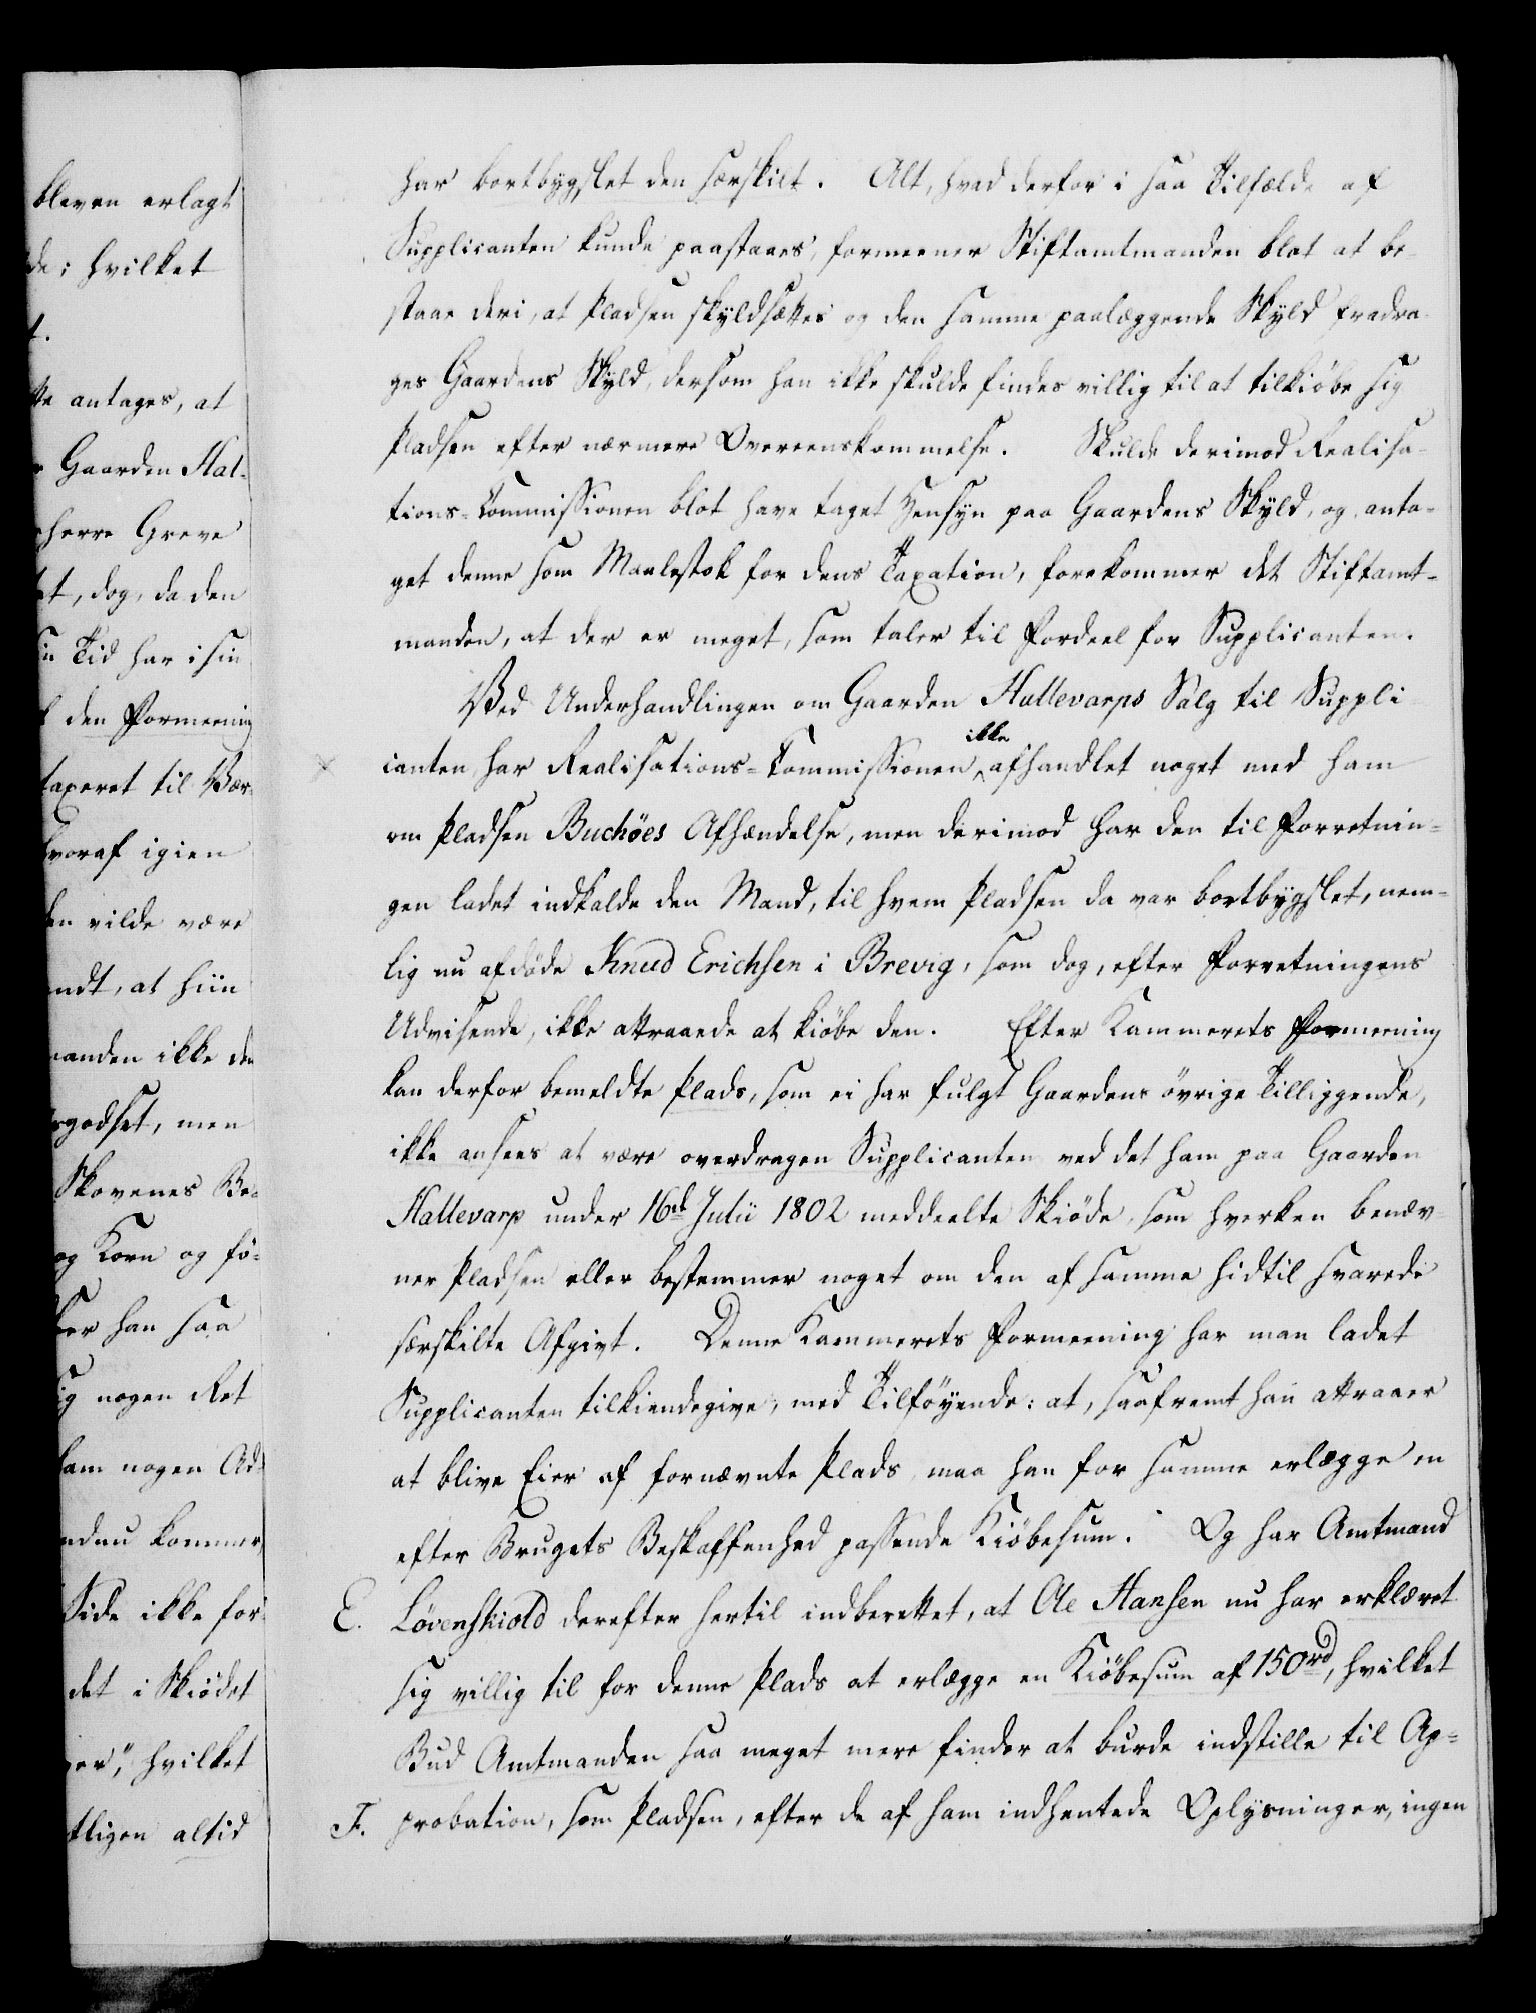 bleven erlagt
de; hvilket
t.
te antages, at
Gaarden Hal-
herre Greve
t, dog, da den
in Tid har i sin
den Formeening
taxeret til Vær-
hvoraf igien
en vilde være
ndt, at hiin
manden ikke den
godset, men
Skovenes Be-
og Korn og fö-
han saa
ig nogen Ret
ham nogen Ad-
ndnu kommer,
Side ikke for-
det i Skiödet
er", hvilket
tligen altid
har bortbygslet den særskilt. Alt, hvad derfor i saa Tilfælde af
Supplicanten kunde paastaaes, formeener Stiftamtmanden blot at be-
staae deri, at Pladsen skyldsættes og den samme paalæggende Skyld fradra-
ges Gaardens Skyld, dersom han ikke skulde findes villig til at tilkiöbe sig
Pladsen efter nærmere Overeenskommelse. Skulde derimod Realisa-
tions-Commissionen blot have taget Hensyn paa Gaardens Skyld, og anta-
get denne som Maalestok for dens Taxation, forekommer det Stiftamt-
manden, at der er meget, som taler til Fordeel for Supplicanten.
Ved Underhandlingen om Gaarden Hallevarps Salg til Suppli-
ikke
× canten, har Realisations-Commissionen ‸ afhandlet noget med ham
om Pladsen Buchöes Afhændelse, men derimod har den til Forretnin-
gen ladet indkalde den Mand, til hvem Pladsen da var bortbygslet, nem-
lig nu afdöde Knud Erichsen i Brevig, som dog, efter Forretningens
Udvisende, ikke attraaede at kiöbe den. Efter Kammerets Formeening
kan derfor bemeldte Plads, som ei har fulgt Gaardens övrige Tilliggende,
ikke ansees at være overdragen Supplicanten ved det ham paa Gaarden
Hallevarp under 16d Julii 1802 meddeelte Skiöde, som hverken benæv-
ner Pladsen eller bestemmer noget om den af samme hidtil svarede
særskilte Afgivt. Denne Kammerets Formeening har man ladet
Supplicanten tilkiendegive, med Tilföyende: at, saafremt han attraaer
at blive Eier af fornævnte Plads, maa han for samme erlægge en
efter Brugets Beskaffenhed passende Kiöbesum. Og har Amtmand
E. Lövenskiold derefter hertil indberettet, at Ole Hansen nu har erklæret
sig villig til for denne Plads at erlægge en Kiöbesum af 150rd, hvilket
Bud Amtmanden saa meget mere finder at burde indstille til Ap-
F. probation, som Pladsen, efter de af ham indhentede Oplysninger, ingen